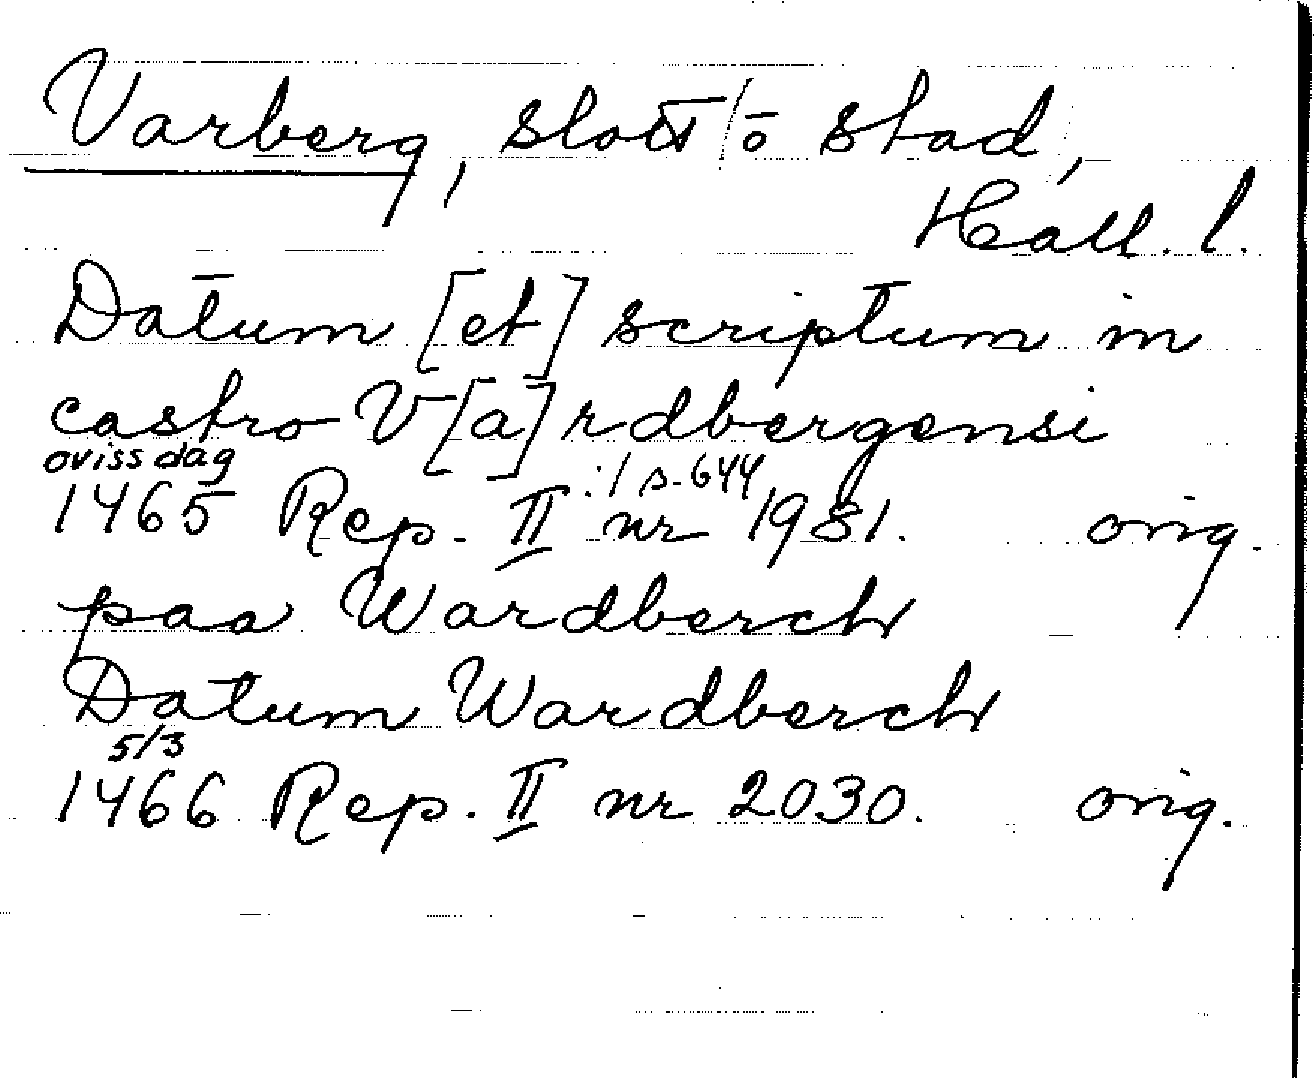 Varberg, slott/o stad,
Hall. l.
Datum [et] scriptum in
castro V[a]rdbergensi
oviss dag
:1 s. 644
1465 Rep. II nr 1981. orig.
paa Wardberch
Datum Wardberch
5/3
1466 Rep. II nr 2030. orig.